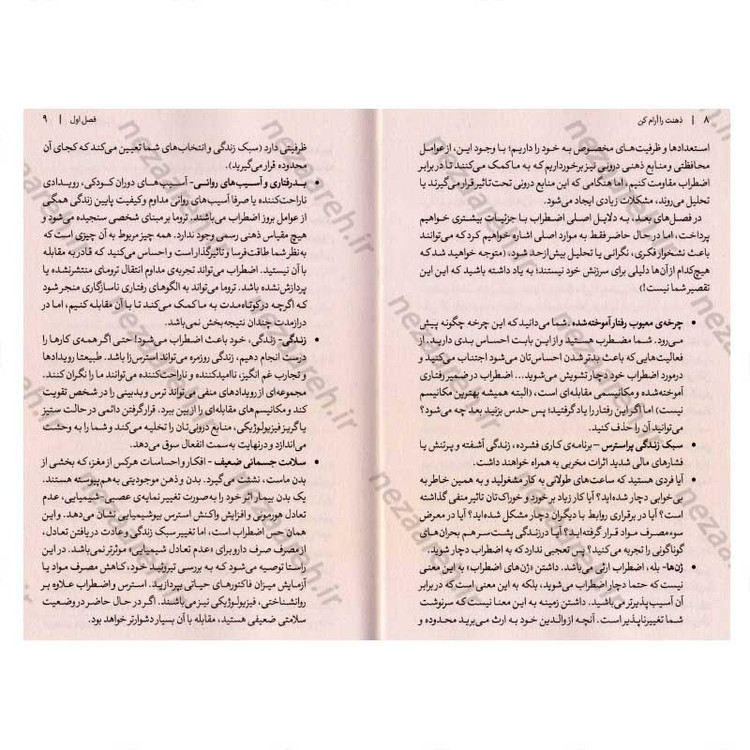 ۸ | ذهنت را آرام کن
استعدادها و ظرفیت‌های مخصوص به خود را داریم؛ با وجود این، از عوامل
محافظتی و منابع ذهنی درونی نیز برخورداریم که به ما کمک می‌کنند تا در برابر
اضطراب مقاومت کنیم، اما هنگامی که این منابع درونی تحت‌تاثیر قرار می‌گیرند یا
تحلیل می‌روند، مشکلات زیادی ایجاد می‌شود.
در فصل‌های بعد، به دلایل اصلی اضطراب با جزییات بیشتری خواهیم
پرداخت، اما در حال حاضر فقط به موارد اصلی اشاره خواهیم کرد که می‌توانند
باعث نشخوار فکری، نگرانی یا تحلیل بیش از حد شود، (متوجه خواهید شد که
هیچ‌کدام از آن‌ها دلیلی برای سرزنش خود نیستند؛ به یاد داشته باشید که این این
تقصیر شما نیست!)
• چرخه‌ی معیوب رفتار آموخته‌شده. شما می‌دانید که این چرخه چگونه پیش
می‌رود. شما مضطرب هستید و از این بابت احساس بدی دارید. از
فعالیت‌هایی که باعث بدتر شدن احساس‌تان می‌شود اجتناب می‌کنید و
درمورد اضطراب خود دچار تشویش می‌شوید... اضطراب در ضمیر رفتاری
آموخته‌شده و مکانیسمی مقابله‌ای است، (البته همیشه بهترین مکانیسم
نیست) اما اگر این رفتار را یاد گرفتید؛ پس حدس بزنید بعد چه می‌شود؟
می‌توانید آن را حذف کنید.
• سبک زندگی پراسترس – برنامه‌ی کاری فشرده، زندگی آشفته و پرتنش یا
فشارهای مالی شدید اثرات مخربی به همراه خواهند داشت.
• آیا فردی هستید که ساعت‌های طولانی به کار مشغولید و به همین خاطر به
بی‌خوابی دچار شده‌اید؟ آیا کار زیاد بر خورد و خوراک‌تان تاثیر منفی گذاشته
است؟ آیا در برقراری روابط با دیگران دچار مشکل شده‌اید؟ آیا در معرض
سوء‌مصرف مواد قرار گرفته‌اید؟ آیا در زندگی پشت سر هم بحران‌های
گوناگونی را تجربه می‌کنید؟ پس تعجبی ندارد که به اضطراب دچار شوید.
• ژن‌ها- بله، اضطراب ارثی می‌باشد. داشتن «ژن‌های اضطراب» به این معنی
نیست که حتما دچار اضطراب می‌شوید، بلکه به این معنی است که در برابر
آن آسیب‌پذیرتر می‌باشید. داشتن زمینه به این معنا نیست که سرنوشت
شما تغییرناپذیر است. آنچه از والدین خود به ارث می‌برید محدوده و
فصل اول | ۹
ظرفیتی دارد (سبک زندگی و انتخاب‌های شما تعیین می‌کند که کجای آن
محدوده قرار می‌گیرید).
• بدرفتاری و آسیب‌های روانی- آسیب‌های دوران کودکی، رویدادی
ناراحت‌کننده یا صرفا آسیب‌های روانی مداوم و کیفیت پایین زندگی همگی
از عوامل بروز اضطراب می‌باشند. تروما بر مبنای شخصی سنجیده می‌شود و
هیچ مقیاس ذهنی رسمی وجود ندارد. همه چیز مربوط به آن چیزی است که
به نظر شما طاقت‌فرسا و تاثیرگذار است و احساس می‌کنید که قادر به مقابله
با آن نیستید. اضطراب می‌تواند تجربه‌ی مداوم انتقال ترومای منتشرنشده یا
پردازش‌نشده باشد. تروما می‌تواند به الگوهای رفتاری ناسازگاری منجر شود
که اگرچه در کوتاه‌مدت به ما کمک می‌کند تا با آن مقابله کنیم، اما در
درازمدت چندان نتیجه‌بخش نمی‌باشد.
• زندگی- زندگی، خود باعث اضطراب می‌شود! حتی اگر همه‌ی کارها را
درست انجام دهیم، زندگی روزمره می‌تواند استرس‌زا باشد. طبیعتا رویدادها
و تجارب غم انگیز، ناامیدکننده و ناراحت‌کننده می‌توانند ما را نگران کنند.
مجموعه‌ای از رویدادهای منفی می‌تواند ترس و بدبینی را در شخص تقویت
کند و مکانیسم‌های مقابله‌ای را از بین ببرد. قرار گرفتن دائمی در حالت ستیز
یا گریز فیزیولوژیکی، منابع درونی‌تان را تخلیه می‌کند و شما را به وحشت
می‌اندازد و درنهایت به سمت انفعال سوق می‌دهد.
• سلامت جسمانی ضعیف - افکار و احساسات هرکس از مغز، که بخشی از
بدن ماست، نشئت می‌گیرد. بدن و ذهن موجودیتی به‌هم‌پیوسته هستند.
یک بدن بیمار اثر خود را به‌صورت تغییر نمایه‌ی عصبی-شیمیایی، عدم
تعادل هورمونی و افزایش واکنش استرس بیوشیمیایی نشان می‌دهد. و این
همان حس اضطراب است، اما تغییر سبک زندگی و عادت دریافتن تعادل،
از مصرف صرف دارو برای «عدم تعادل شیمیایی» موثرتر نمی‌باشد. در این
راستا توصیه می‌شود که به بررسی تیروئید خود، کاهش مصرف مواد یا
آزمایش میزان فاکتورهای حیاتی بپردازید. استرس و اضطراب علاوه بر
روانشناختی، فیزیولوژیکی نیز می‌باشند. اگر در حال حاضر در وضعیت
سلامتی ضعیفی هستید، مقابله با آن بسیار دشوارتر خواهد بود.
nezaareh.ir